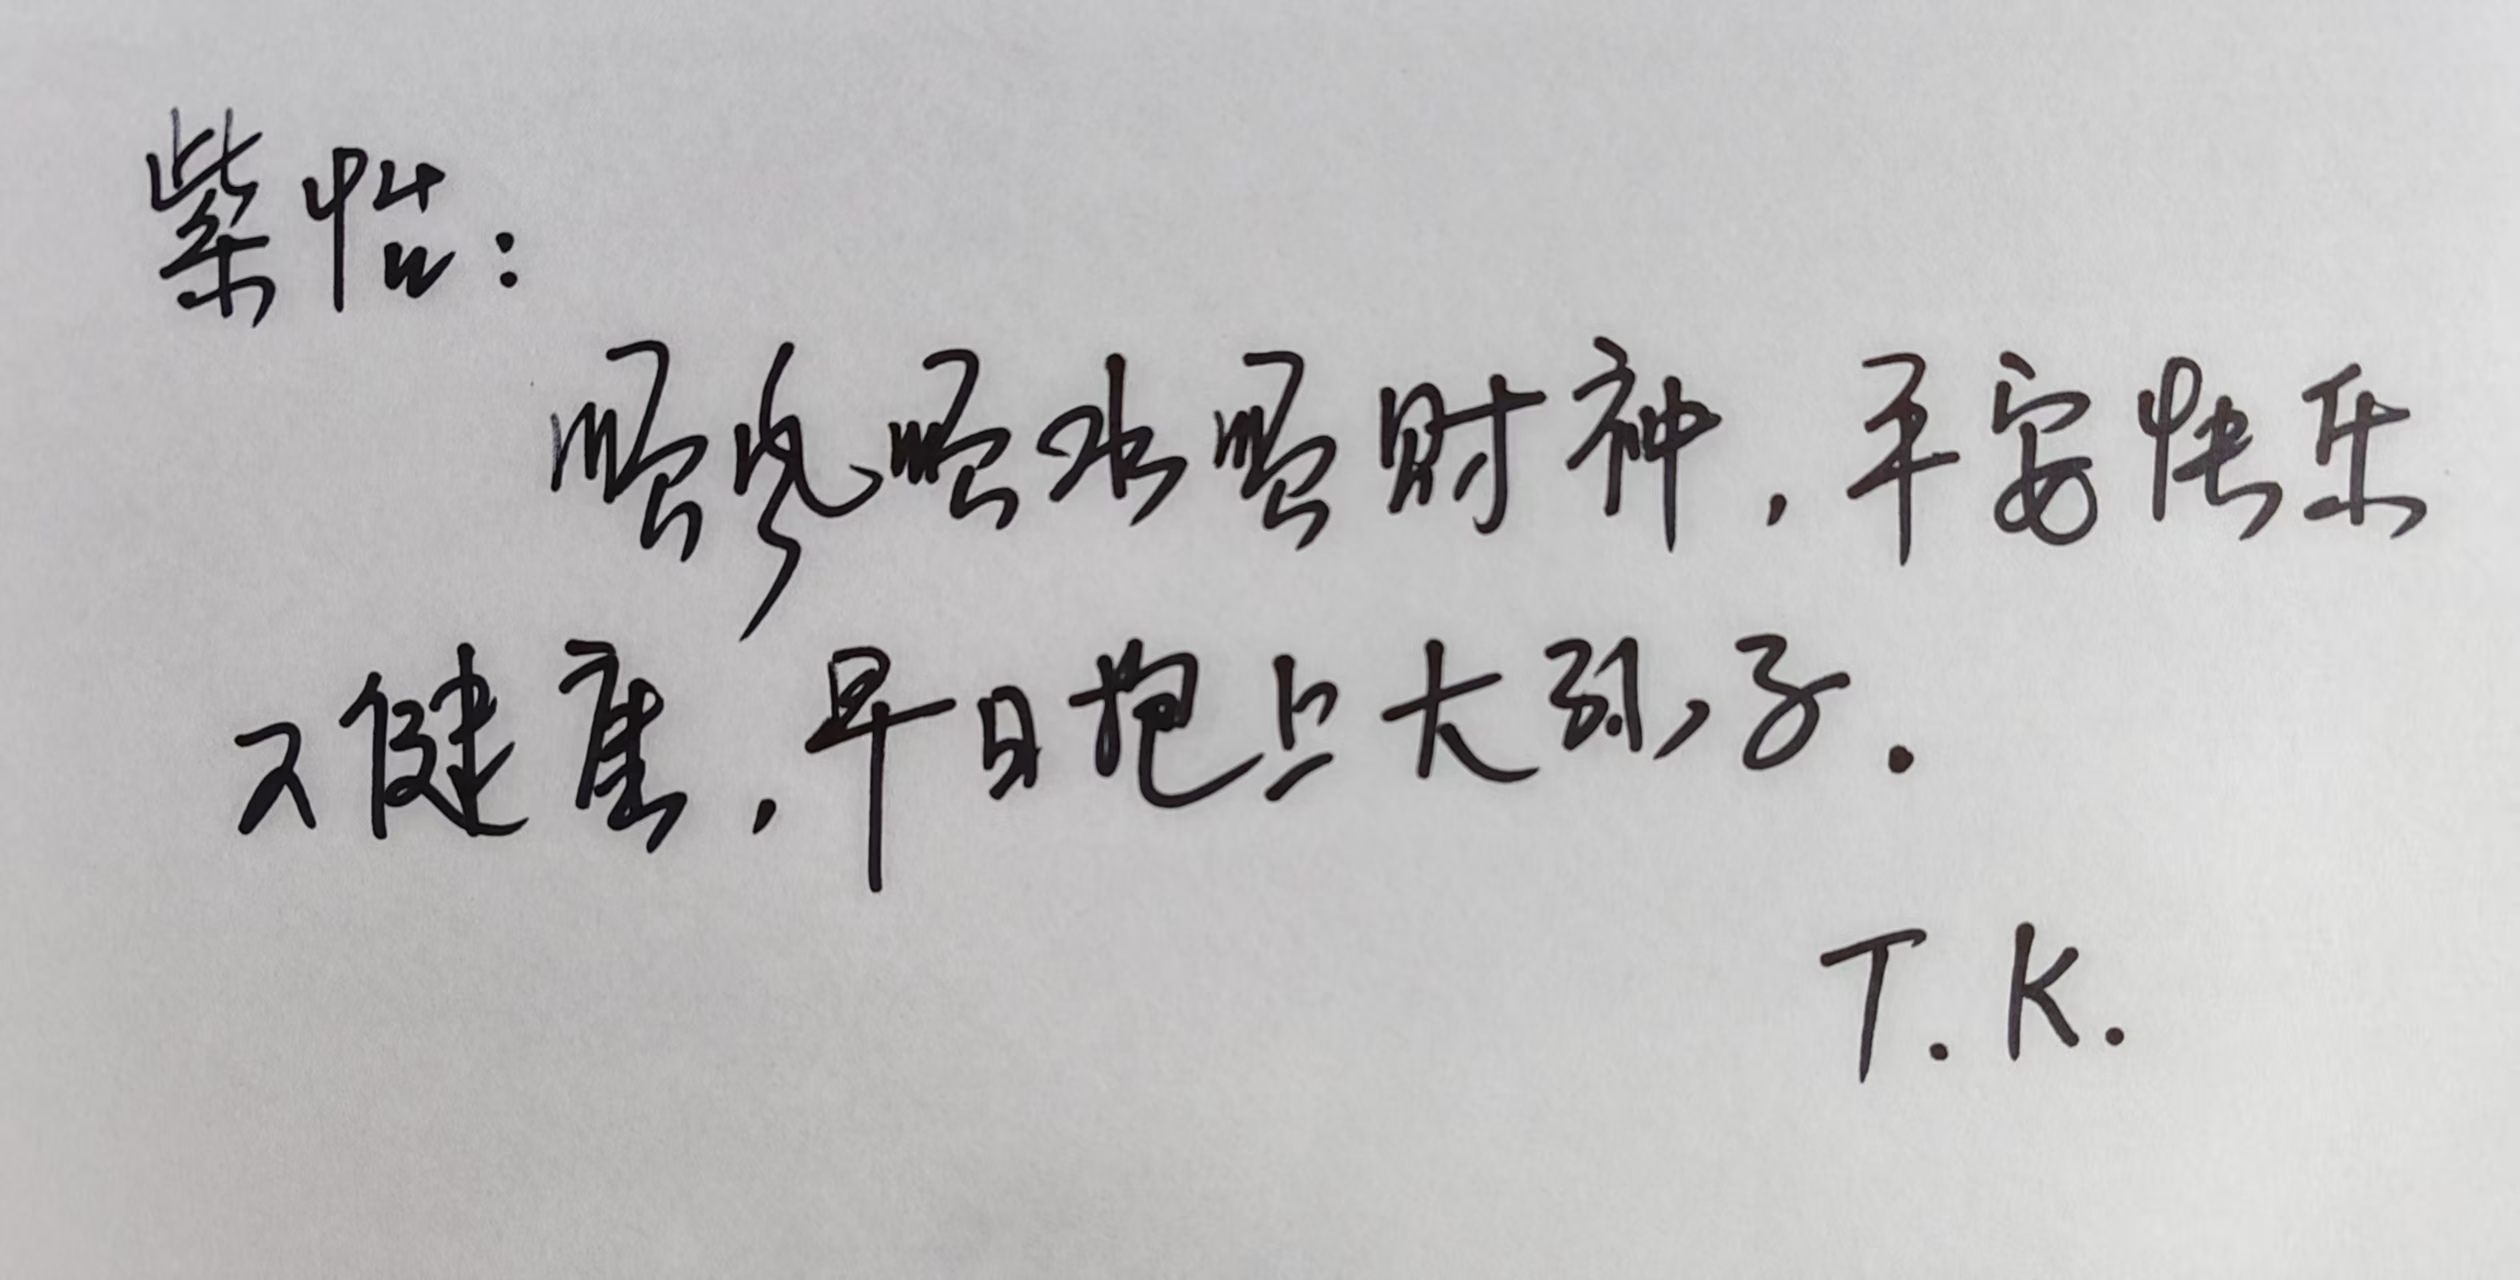 紫怡:
顺风顺水顺财神,平安快乐
又健康,早日抱上大孙子.
T.K.